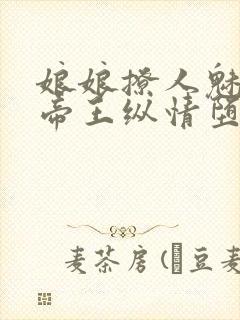 娘娘撩人魅
帝王纵情堕
麦茶房(豆麦